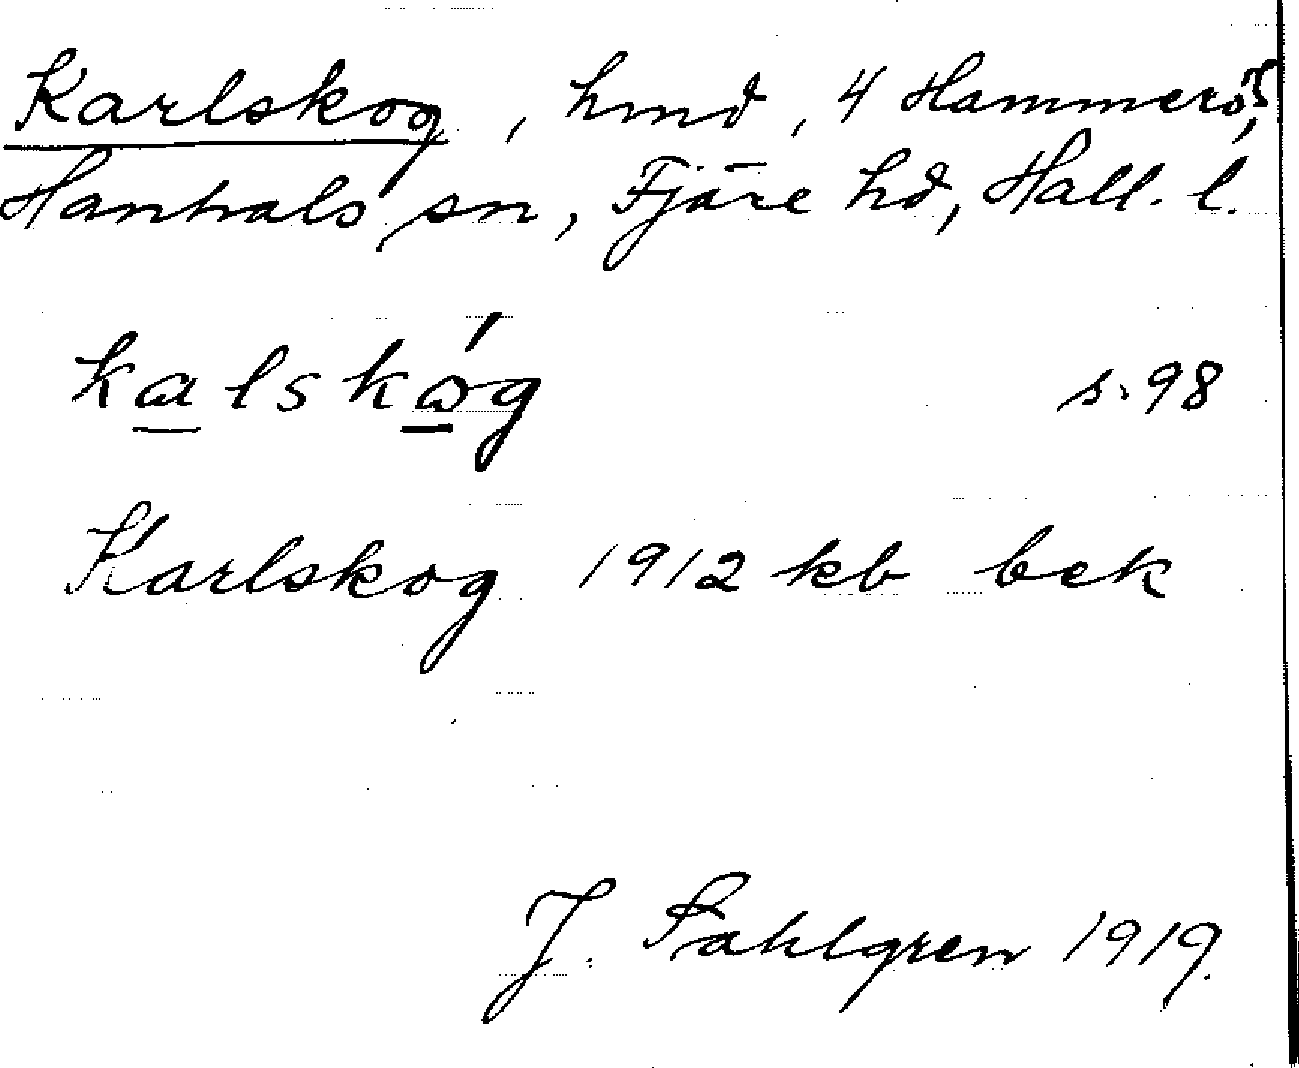 Karlskog, hmd, 4 Hammerö,
Hanhals sn, Fjäre hd, Hall. l.
kalskåg s. 98
Karlskog 1912 kb bek
J. Sahlgren 1919.